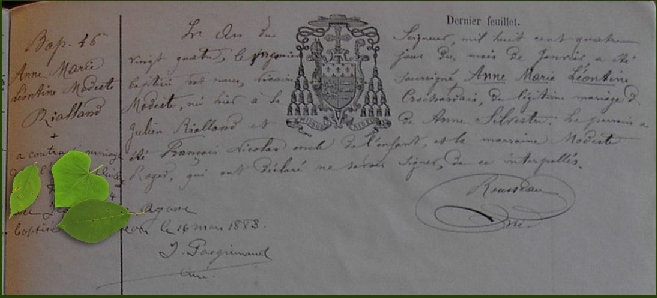 Dernier feuillet.
Bap. 46
Anne Marie
Léontine Modeste
Rialland
a contracté mariage
L'an du
Seigneur, mil huit cent quatre
vingt quatre, le premier
jour du mois de Janvier, a été
baptisée par nous, vicaire
soussigné Anne Marie Léontine
Modeste, née hier à la
Croissandais, du légitime mariage d
Julien Rialland et
de Anne Silvestre. Le parrain a
été François Nicolas oncle de l'enfant, et la marraine Modeste
Roger, qui ont déclaré ne savoir signer, de ce interpellés.
Rousseau
Vic.
le 16 mars 1883.
Curé.